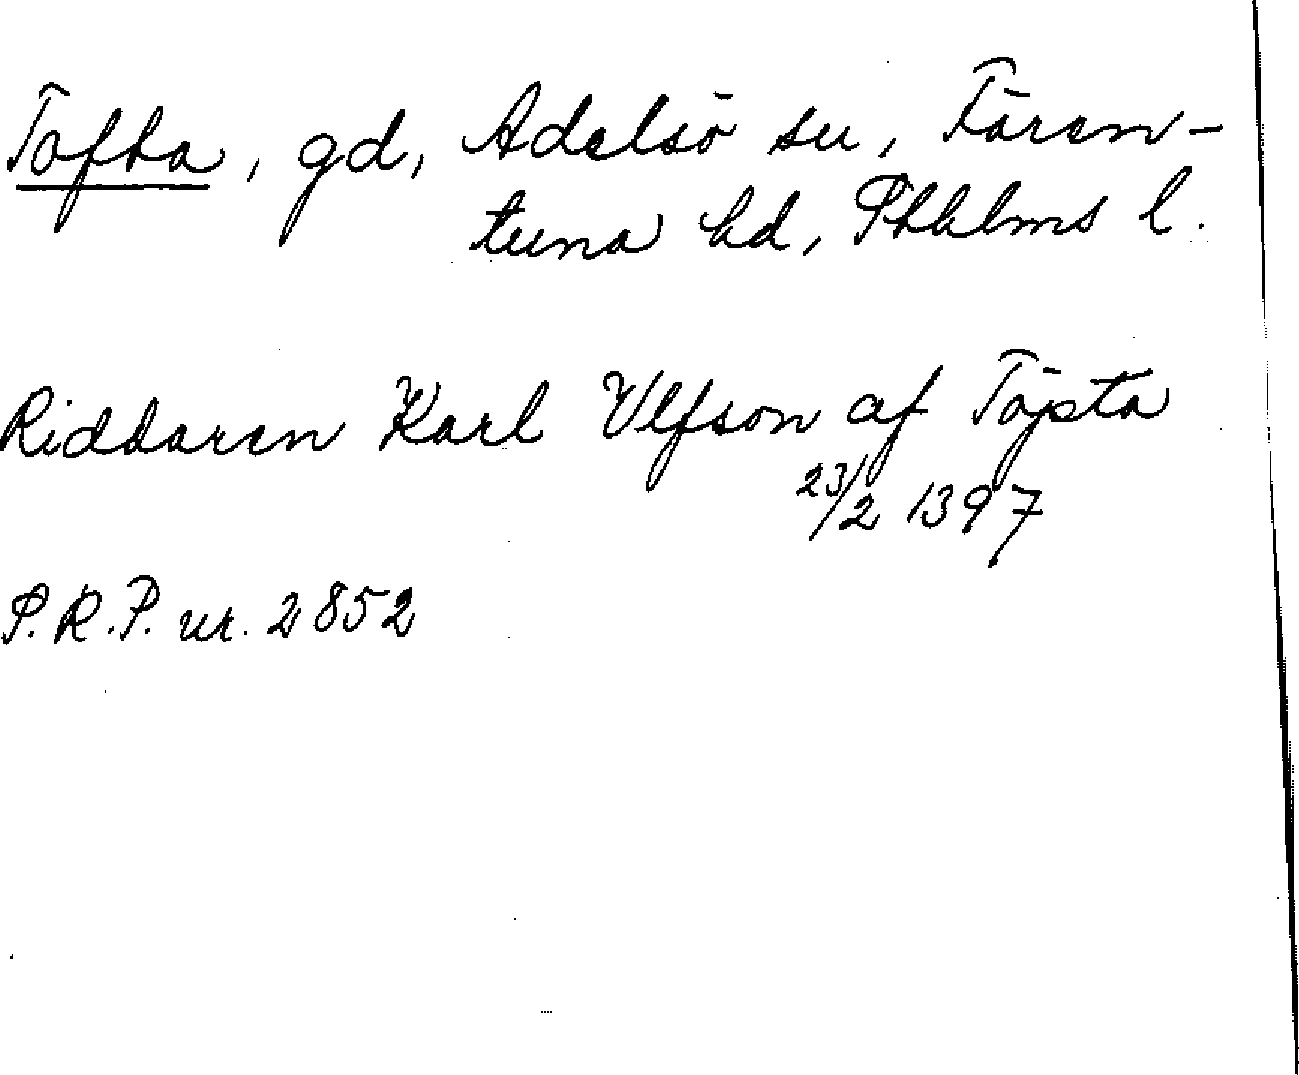 Tofta, gd, Adelsö sn, Fären-
tuna hd, Sthlms l.
Riddaren Karl Ulfson af Töpsta
23/2 1397
S.R.P. nr. 2852